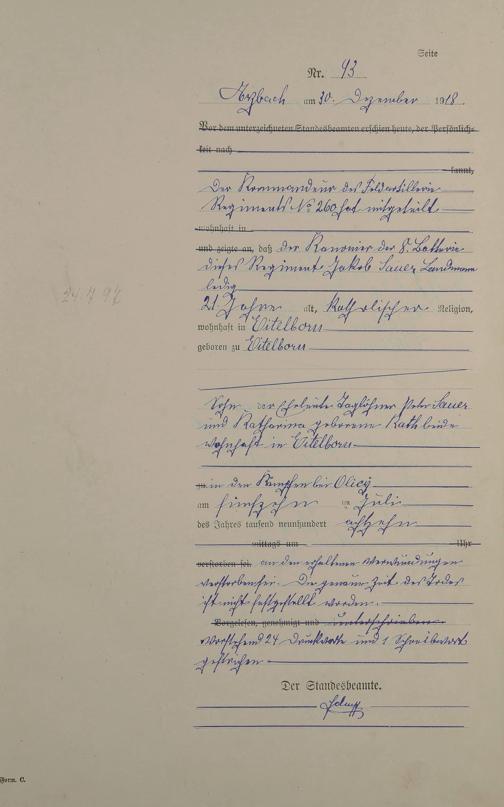 Seite
Nr. 93
Arzbach am 30. Dezember 1918.
Vor dem unterzeichneten Standesbeamten erschien heute, der Persönlich-
keit nach
kannt,
Der Kommandeur des Feldartillerie
Regiments No 260 hat mitgeteilt
wohnhaft in
und zeigte an, daß der Kanonier der 8. Batterie
dieses Regiment Jakob Sauer Landmann
ledig
21 Jahre alt, katholischer Religion,
wohnhaft in Eitelborn
geboren zu Eitelborn
Sohn der Eheleute Taglöhner Peter Sauer
und Katharina geborene Kath beide
wohnhaft in Eitelborn
zu in den Kämpfen bei Olicy
am fünfzehn Juli
des Jahres tausend neunhundert achtzehn
mittags um Uhr
verstorben sei. an den erhaltenen Verwundungen
verstorben sei. Die genaue Zeit des Todes
ist nicht festgestellt worden.
Vorgelesen, genehmigt und unterschrieben
Vorstehend 24 Druckworte und 1 Schreibwort
gestrichen
Der Standesbeamte.
Form. C.